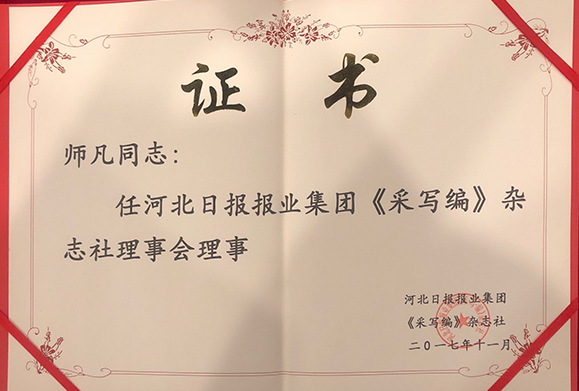 证 书
师凡同志：
任河北日报报业集团《采写编》杂
志社理事会理事
河北日报报业集团
《采写编》杂志社
二〇一七年十一月